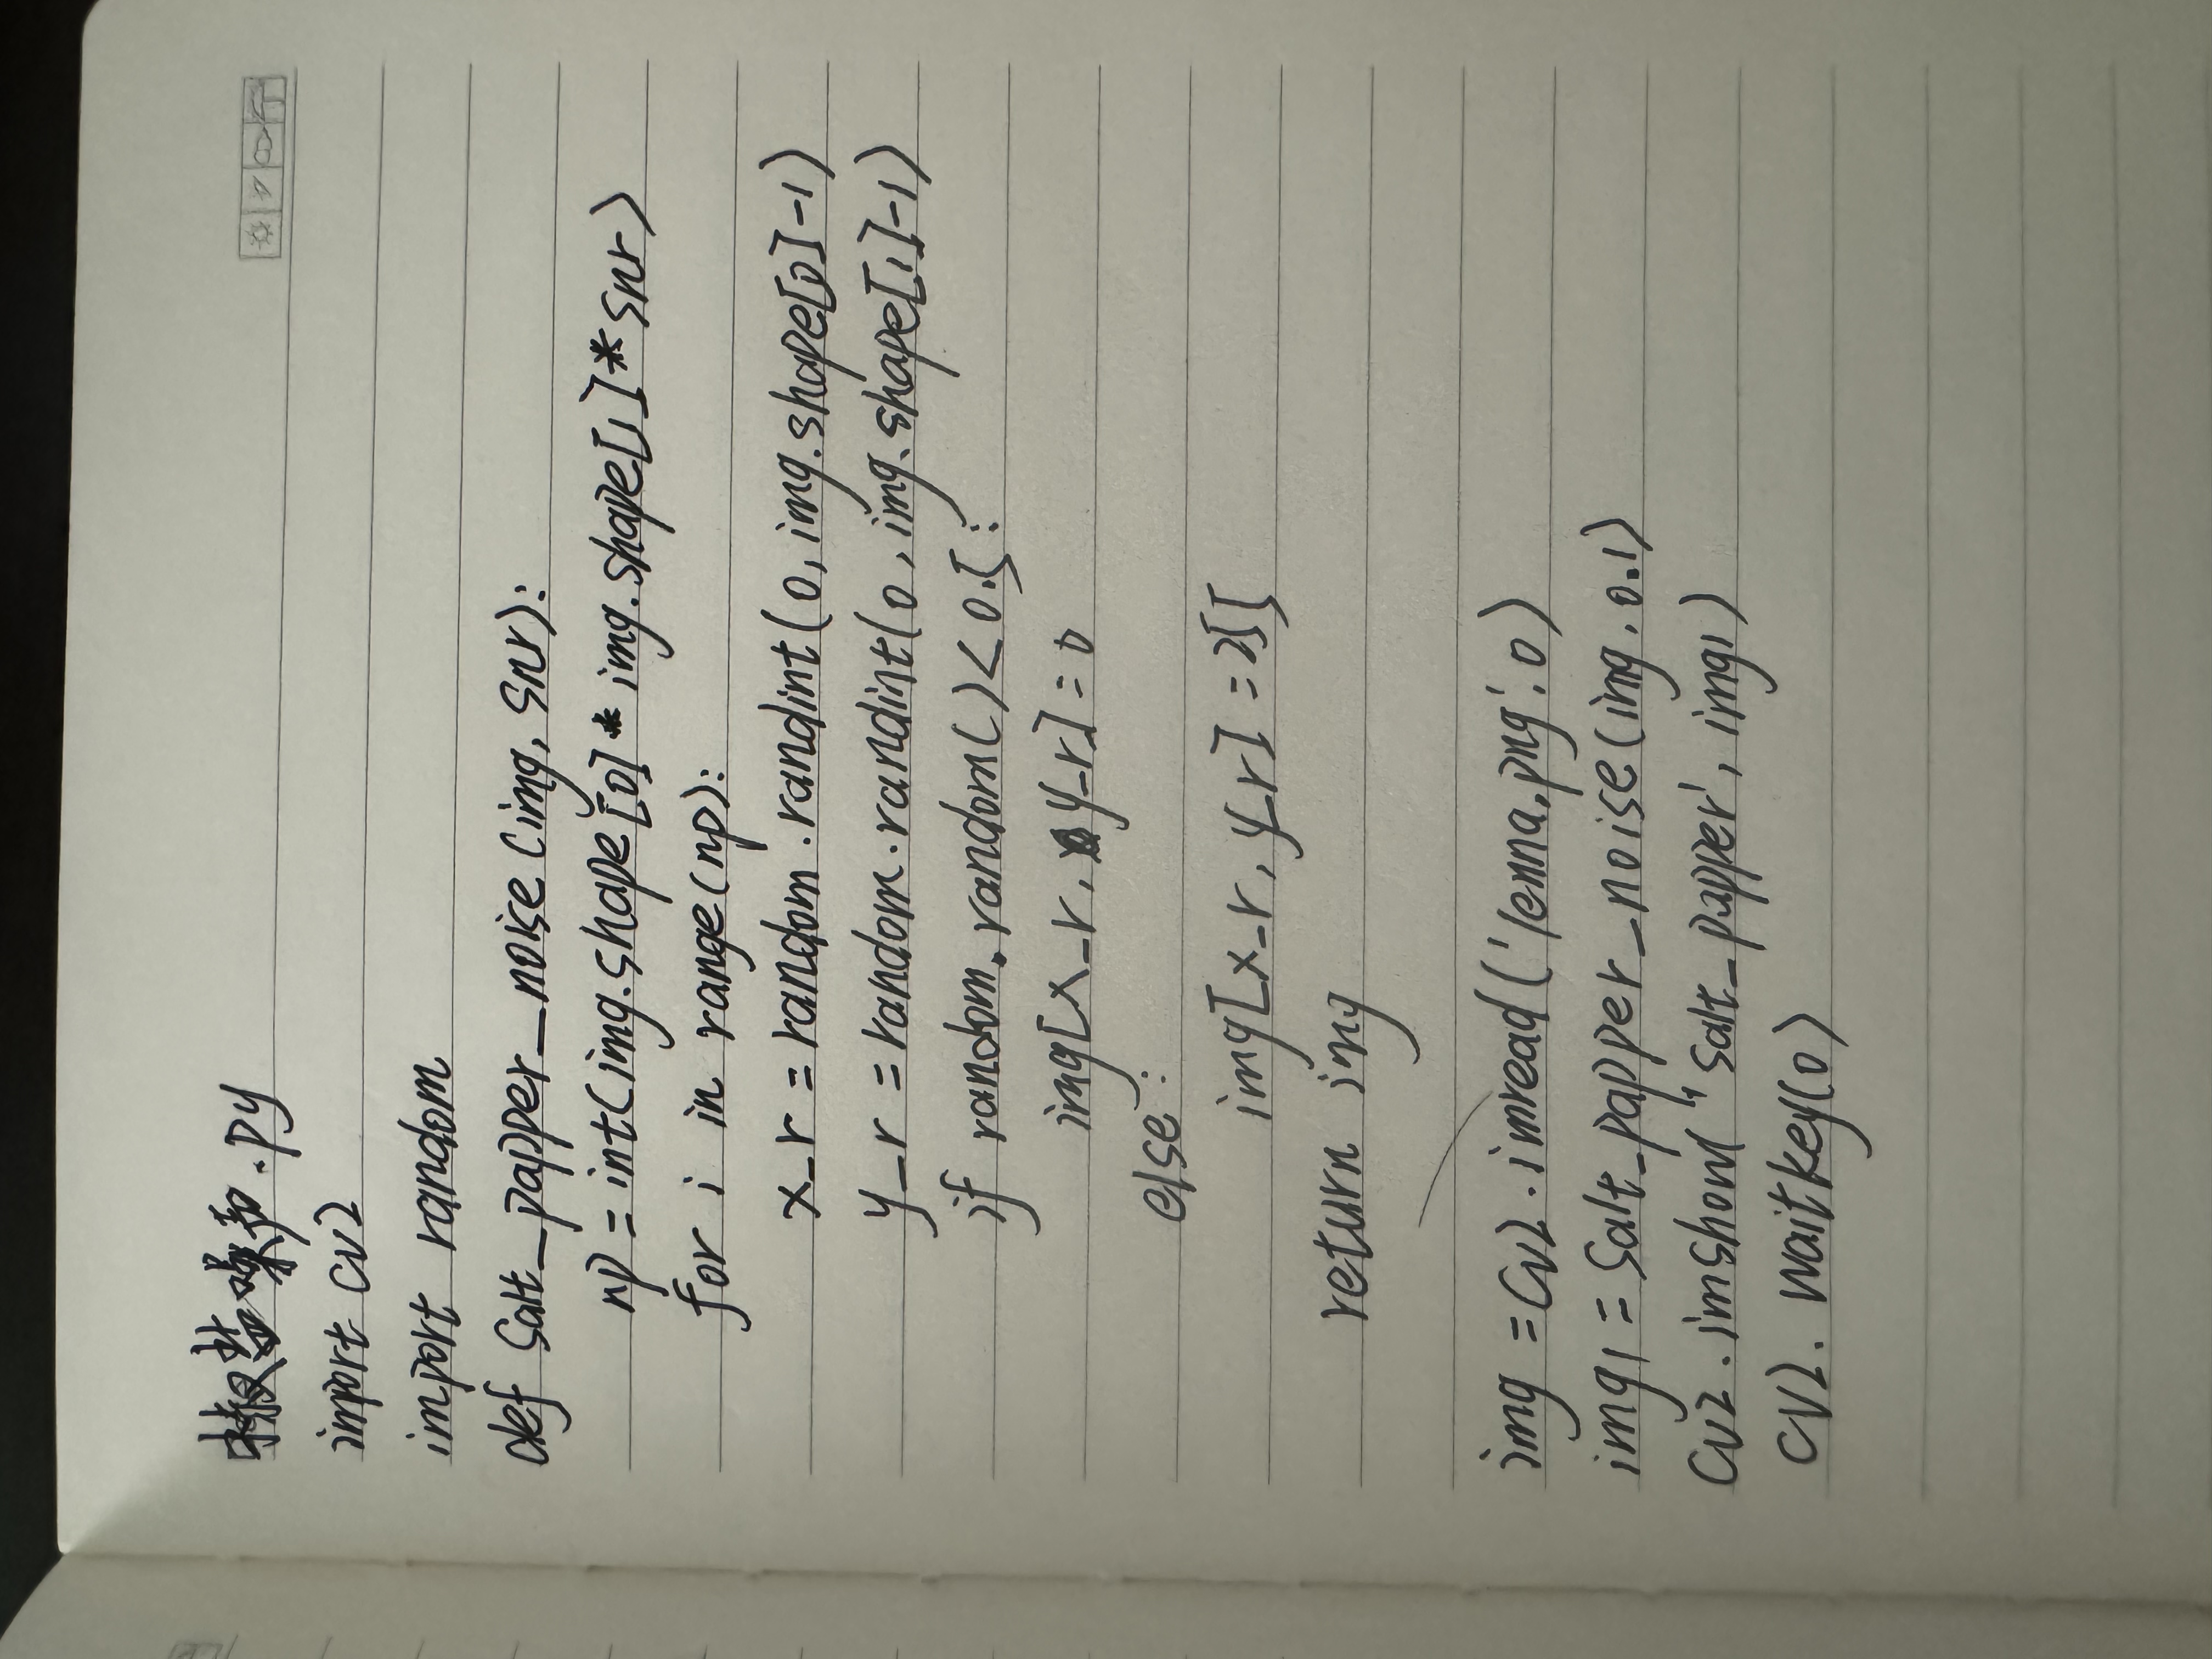 椒盐噪声.py
import cv2
import random
def salt_papper_noise(img, snr):
np = int(img.shape[0] * img.shape[1] * snr)
for i in range(np):
x_r = random.randint(0, img.shape[0]-1)
y_r = random.randint(0, img.shape[1]-1)
if random.random() < 0.5:
img[x_r, y_r] = 0
else:
img[x_r, y_r] = 255
return img
img = cv2.imread('lenna.png', 0)
img1 = salt_papper_noise(img, 0.1)
cv2.imshow('salt_papper', img1)
cv2.waitkey(0)